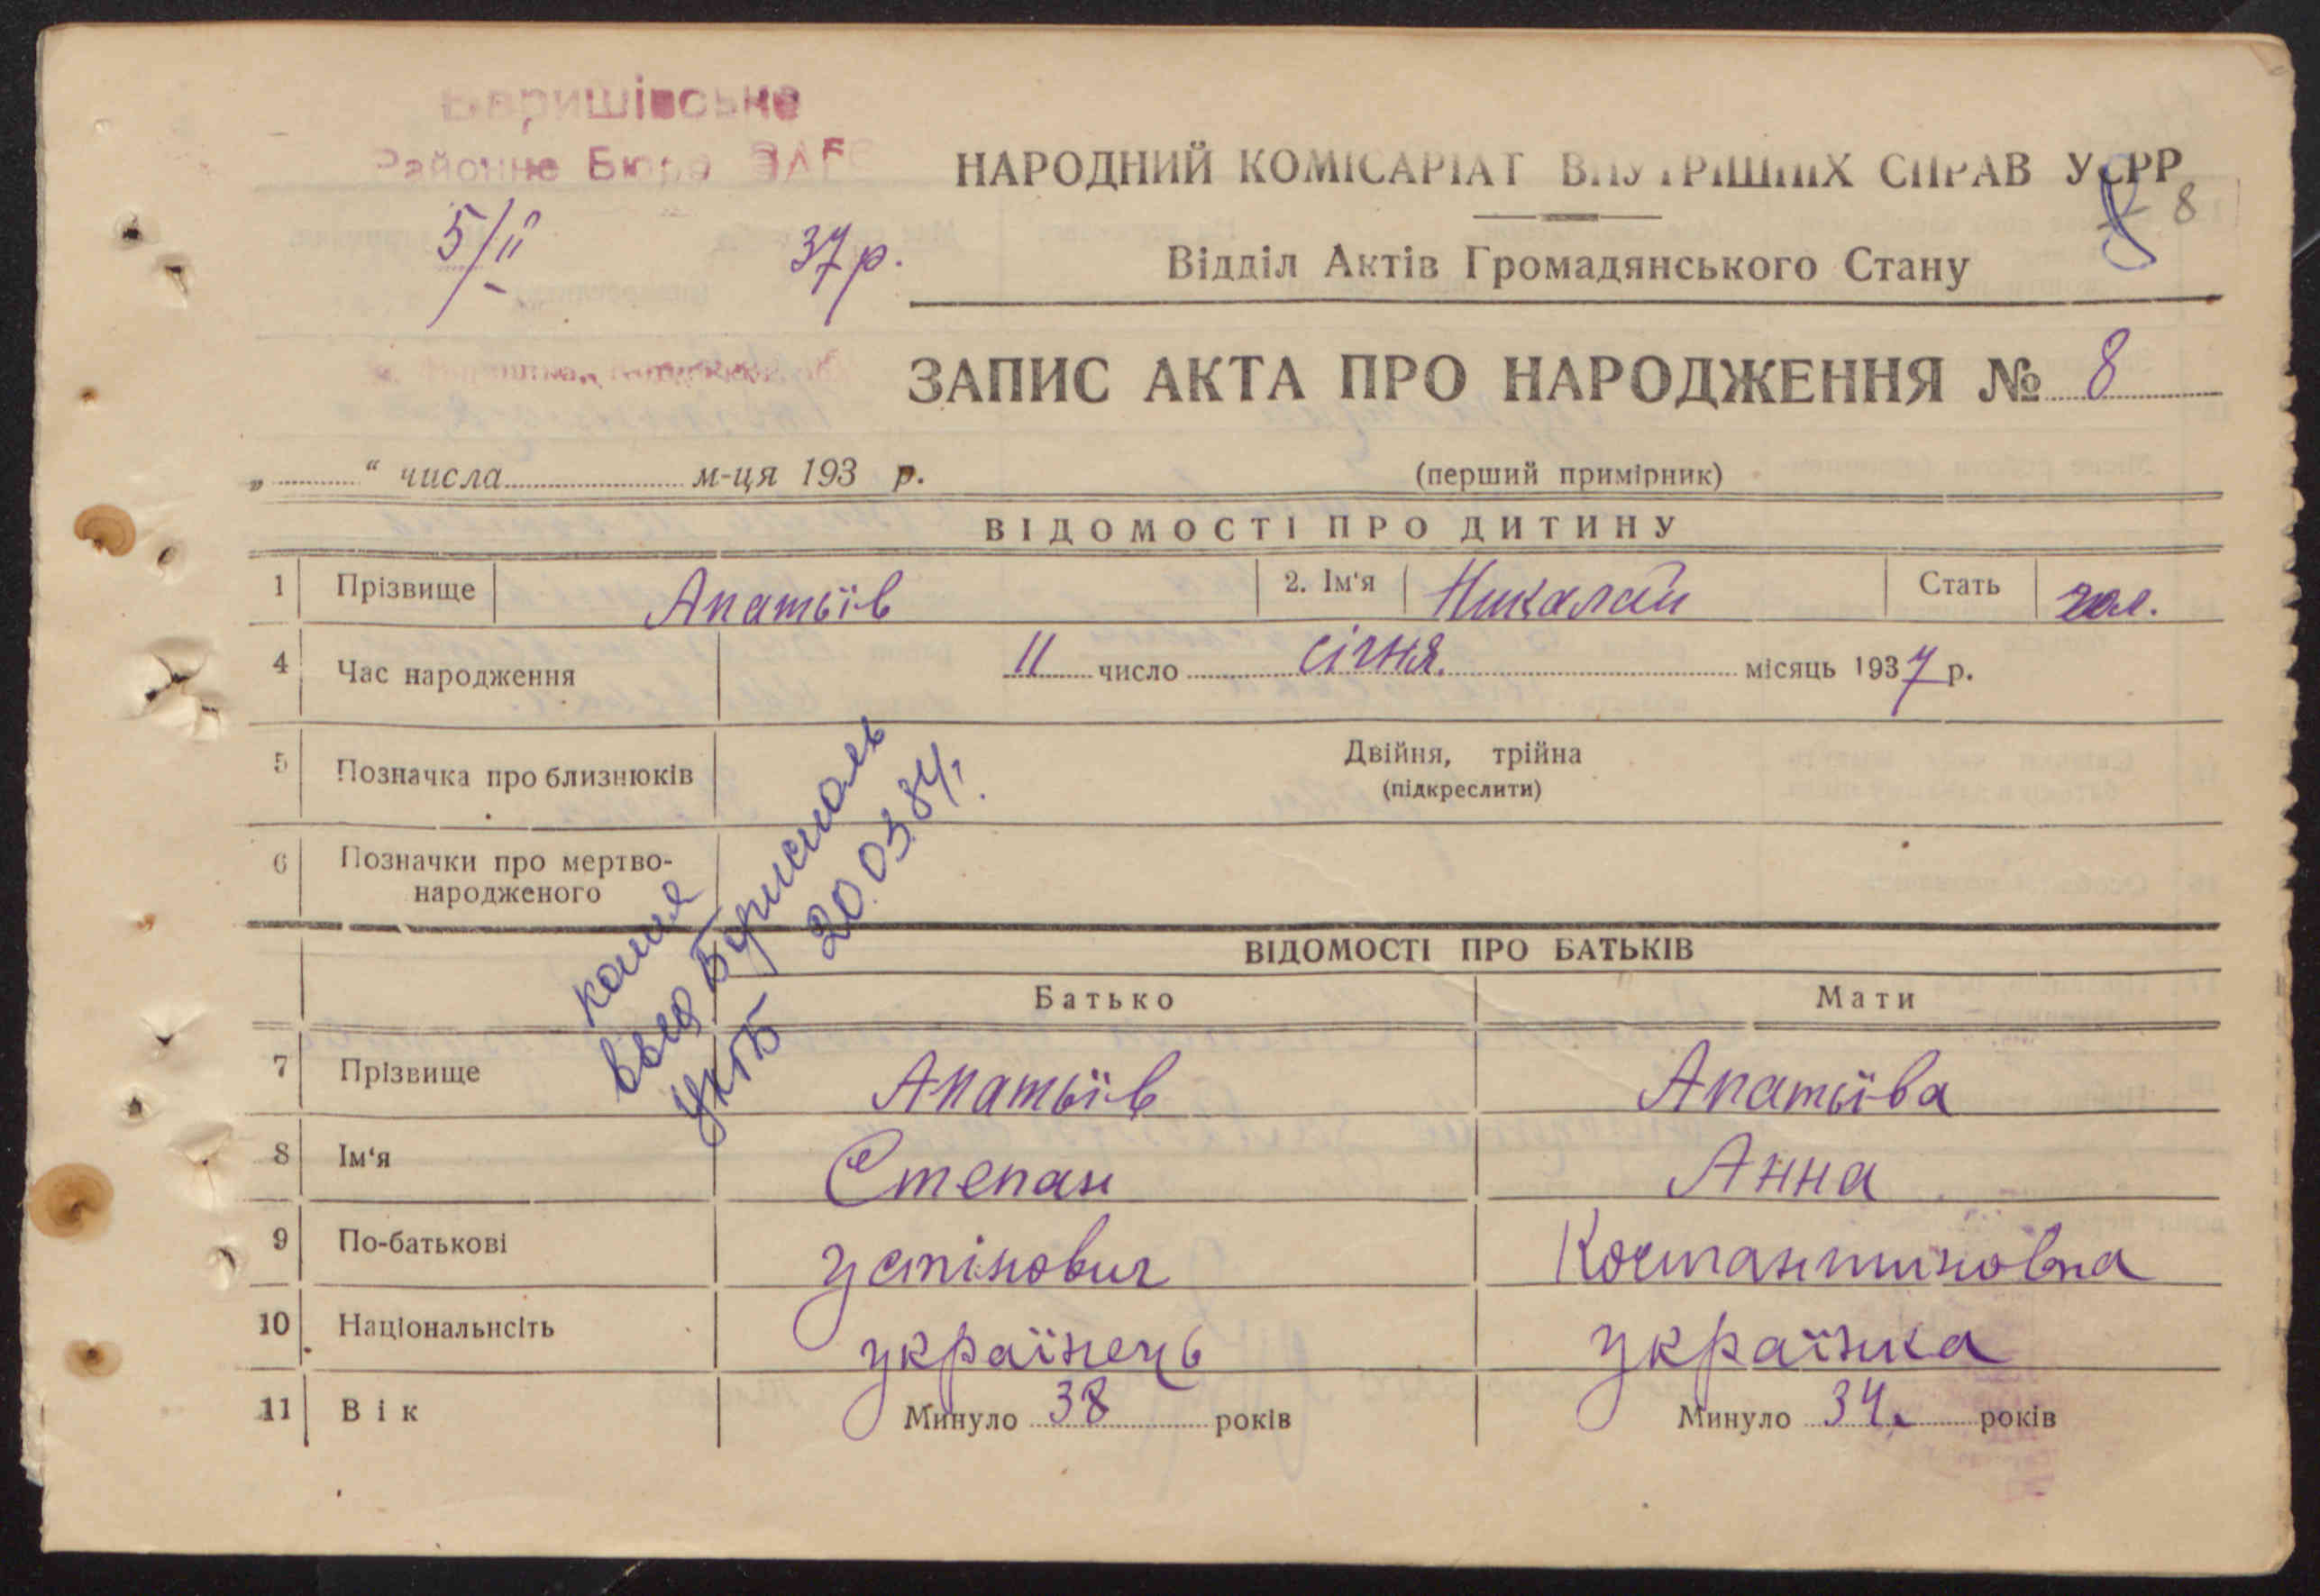 Баришівське
Районне Бюро ЗАГС
5/II 37 р.
НАРОДНИЙ КОМІСАРІАТ ВНУТРІШНІХ СПРАВ УСРР
8
Відділ Актів Громадянського Стану
ЗАПИС АКТА ПРО НАРОДЖЕННЯ № 8
„ “ числа м-ця 193 р.
(перший примірник)
ВІДОМОСТІ ПРО ДИТИНУ
1 Прізвище Апатьїв 2. Ім‘я Николай Стать чол.
4 Час народження 11 число січня. місяць 1937 р.
5 Позначка про близнюків Двійня, трійна
(підкреслити)
6 Позначки про мертво-
народженого
копия
выд. Борисполь
20.03.84г.
ВІДОМОСТІ ПРО БАТЬКІВ
Батько Мати
7 Прізвище Апатьїв Апатьїва
8 Ім‘я Степан Анна
9 По-батькові Устінович Костантиновна
10 Національнсіть українець українка
11 Вік Минуло 38 років Минуло 34. років